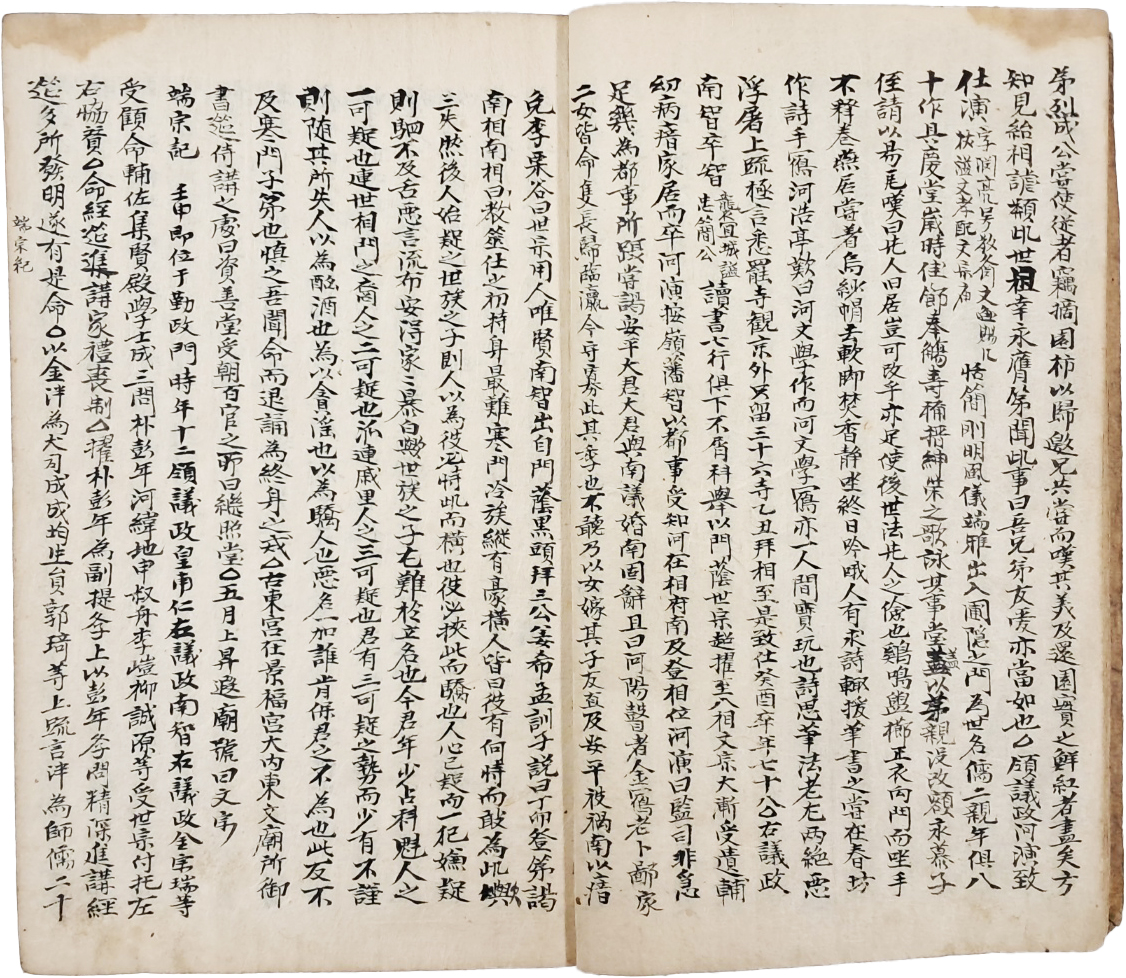 弟烈成公嘗使從者竊摘園柿以歸邀兄共嘗而嘆其美及還園實之鮮紅者盡矣方
知見紿相謔類此世祖幸永膺弟聞此事曰吾兄弟友愛亦當如也○領議政河演致
仕演字淵亮号敬齋文孝配文宗廟賜几恬簡剛明風儀端雅出入圃隐之門為世名儒二親年俱八
十作具慶堂歲時佳節奉觴壽桶搢紳榮之歌詠其事堂盖以茅親没改顔永慕子
侄請以易瓦嘆曰此人旧居豈可改乎亦足使後世法此人之儉也鷄鳴盥櫛正衣向門而坐手
不释卷燕居嘗着烏紗帽去軟脚焚香静坐終日吟哦人有求詩輙援筆書之嘗在春坊
作詩手寫河浩亭歎曰河文學作而河文學寫亦一人間寶玩也詩思筆法老尤两絶悪
浮屠上疏極言悉罷寺観京外只留三十六寺乙丑拜相至是致仕癸酉卒年七十八○右議政
南智卒智襲宜城謚忠簡公讀書八行俱下不屑科擧以門蔭世宗超擢至入相文宗大漸受遺輔
幼病瘖家居而卒河演按嶺藩智以都事受知河在相府南及登相位河演曰監司非急
足幾為都事所躡嘗謁安平大君大君與南議婚南固辭且曰河陽瞽者金鶴老卜鄙家
二女皆命隻長歸臨瀛今守寡此其季也不聽乃以女嫁其子友直及安平被禍南以瘖
免李栗谷曰世宗用人唯賢南智出自門蔭黒頭拜三公姜希孟訓子説曰丁卯登第謁
南相南相曰敎筮仕之初持身最難寒門冷族縱有豪横人皆曰彼有何恃而敢為此歟
三失然後人始疑之世族之子則人以為彼宅恃此而横也彼必挾此而驕也人心已疑而一犯嫌疑
則駟不及舌悪言流布安得家三暴白歟世族之子尤難於立名也今君年少占科魁人之
一可疑也連世相門之裔人之二可疑也派連戚里人之三可疑也君有三可疑之勢而少有不謹
則随其所失人以為酗酒也為以貪滛也以為驕人也悪名一加誰肯保君之不為也此友不
及寒門子第也慎之吾聞命而退誦為終身之戒○古東宮在景福宮大内東文廟所御
書筵侍講之處曰資善堂受朝百官之所曰継照堂○五月上昇遐廟號曰文宗
端宗記 壬申即位于勤政門時年十二領議政皇甫仁右議政南智右議政金宗瑞等
受顧命輔佐集賢殿學士成三問朴彭年河緯地申叔舟李塏柳誠源等受世宗付托左
右恊賛○命經筵進講家禮喪制○擢朴彭年為副提李上以彭年李問精深進講經
筵多所發明遂有是命○以金泮為大司成成均生員郭琦等上疏言泮為師儒二十
端宗紀